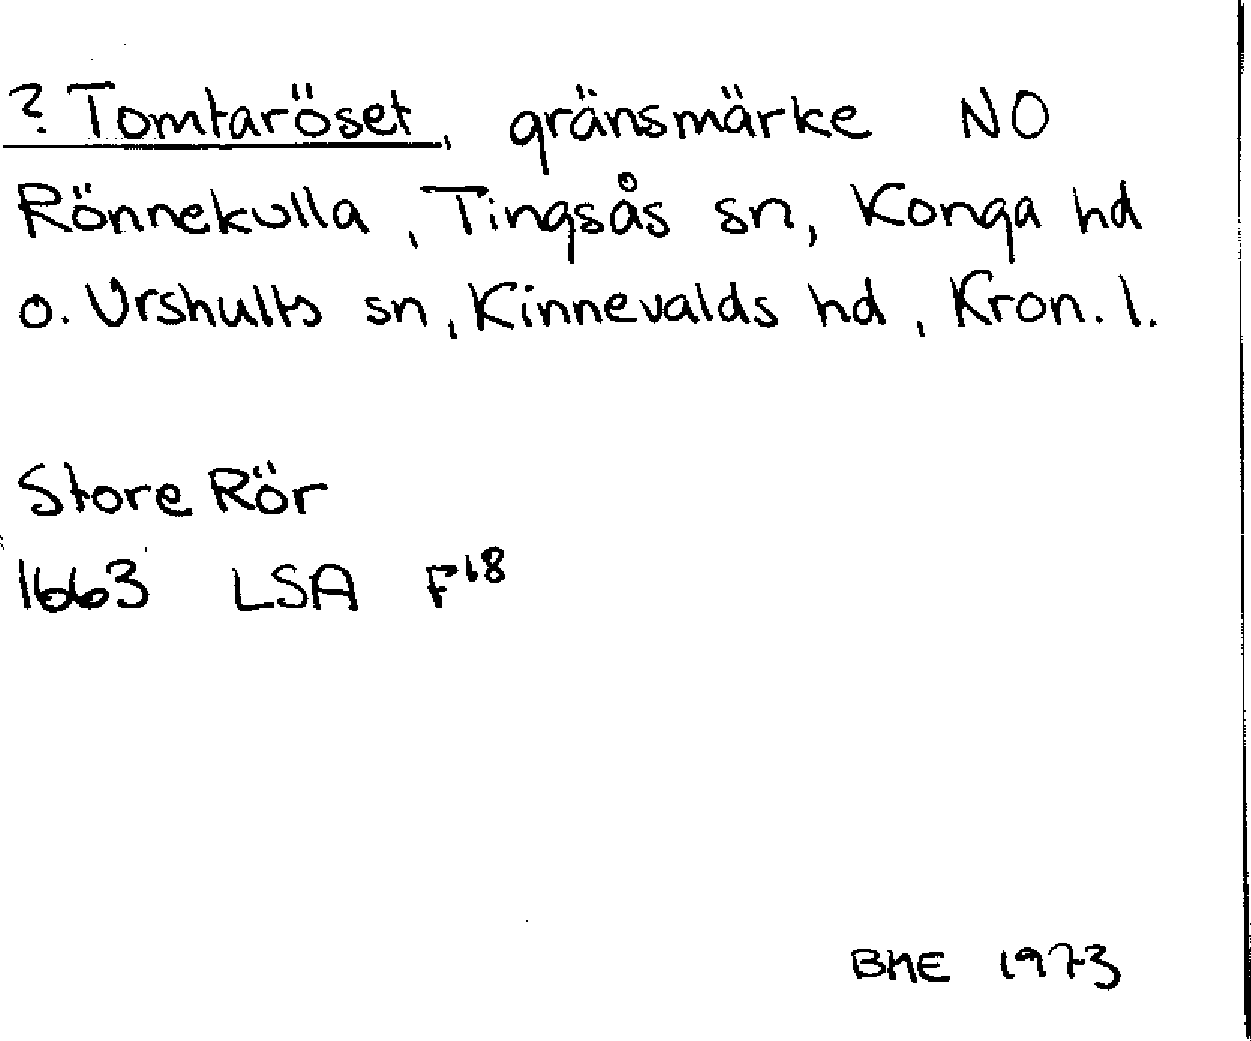 ? Tomtaröset, gränsmärke NO
Rönnekulla, Tingsås sn, Konga hd
o. Urshults sn, Kinnevalds hd, Kron. l.
Store Rör
1663 LSA F 18
BME 1973